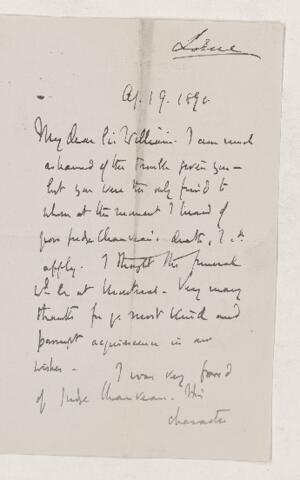 Lorne
Ap. 19. 1890
My dear Sir William. I am much
ashamed of the trouble given you -
but you were the only friend to
whom at the moment I heard of
poor Judge Chauveau's death, I cd.
apply. I thought the funeral
wd. be at Montreal - Very many
thanks for yr most kind and
prompt acquiescence in our
wishes - I was very fond
of Judge Chauveau. His
character